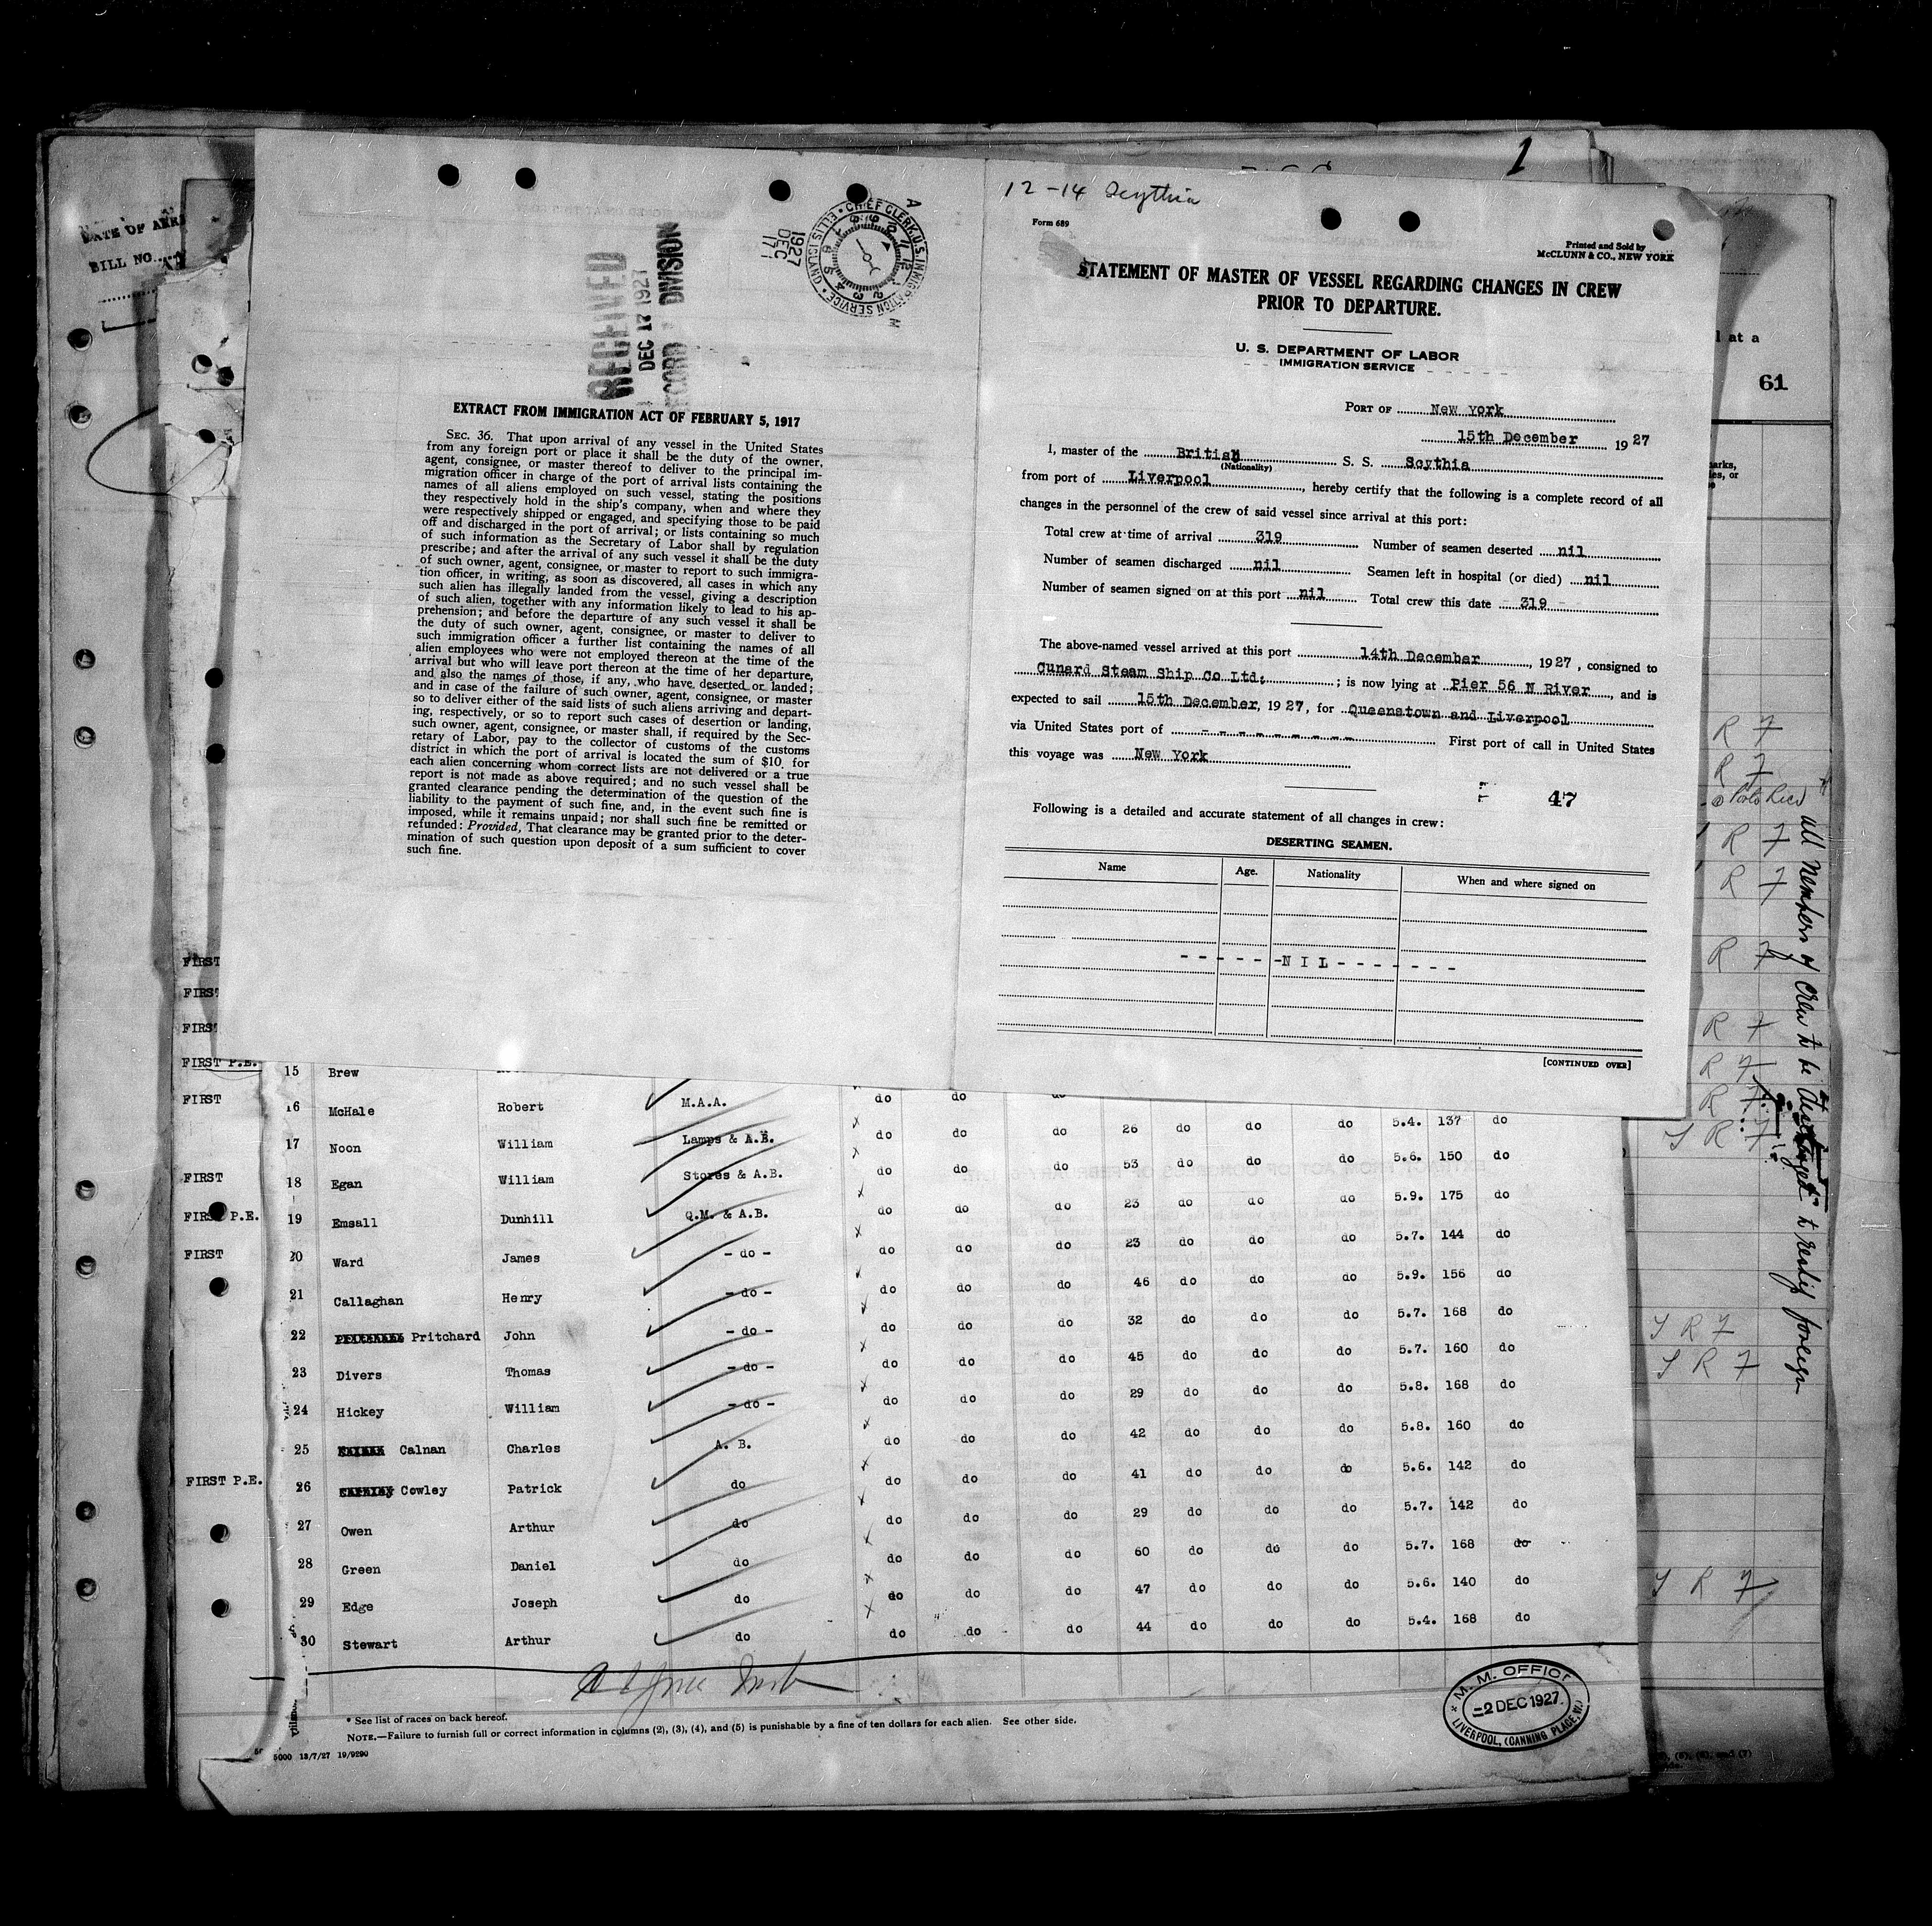 1
12-14 Scythia
Form 689
Printed and Sold by
McCLUNN & CO., NEW YORK
STATEMENT OF MASTER OF VESSEL REGARDING CHANGES IN CREW
PRIOR TO DEPARTURE.
U. S. DEPARTMENT OF LABOR
IMMIGRATION SERVICE
PORT OF New York
15th December 1927
I, master of the British S. S. Scythia
(Nationality)
from port of Liverpool, hereby certify that the following is a complete record of all
changes in the personnel of the crew of said vessel since arrival at this port:
Total crew at time of arrival 319 Number of seamen deserted nil
Number of seamen discharged nil Seamen left in hospital (or died) nil
Number of seamen signed on at this port nil Total crew this date 319
The above-named vessel arrived at this port 14th December, 1927, consigned to
Cunard Steam Ship Co Ltd; ; is now lying at Pier 56 N River, and is
expected to sail 15th December, 1927, for Queenstown and Liverpool
via United States port of - - - - - - - - - First port of call in United States
this voyage was New York
47
Following is a detailed and accurate statement of all changes in crew:
DESERTING SEAMEN.
Name Age. Nationality When and where signed on
- - - - - -NIL- - - - - - -
[CONTINUED OVER]
RECEIVED
DEC 17 1927
RECORD DIVISION
1927
DEC
17
CHIEF CLERK, U.S. IMMIGRATION SERVICE • ELLIS ISLAND
EXTRACT FROM IMMIGRATION ACT OF FEBRUARY 5, 1917
SEC. 36. That upon arrival of any vessel in the United States
from any foreign port or place it shall be the duty of the owner,
agent, consignee, or master thereof to deliver to the principal im-
migration officer in charge of the port of arrival lists containing the
names of all aliens employed on such vessel, stating the positions
they respectively hold in the ship's company, when and where they
were respectively shipped or engaged, and specifying those to be paid
off and discharged in the port of arrival; or lists containing so much
of such information as the Secretary of Labor shall by regulation
prescribe; and after the arrival of any such vessel it shall be the duty
of such owner, agent, consignee, or master to report to such immigra-
tion officer, in writing, as soon as discovered, all cases in which any
such alien has illegally landed from the vessel, giving a description
of such alien, together with any information likely to lead to his ap-
prehension; and before the departure of any such vessel it shall be
the duty of such owner, agent, consignee, or master to deliver to
such immigration officer a further list containing the names of all
alien employees who were not employed thereon at the time of the
arrival but who will leave port thereon at the time of her departure,
and also the names of those, if any, who have deserted or landed;
and in case of the failure of such owner, agent, consignee, or master
so to deliver either of the said lists of such aliens arriving and depart-
ing, respectively, or so to report such cases of desertion or landing,
such owner, agent, consignee, or master shall, if required by the Sec-
retary of Labor, pay to the collector of customs of the customs
district in which the port of arrival is located the sum of $10 for
each alien concerning whom correct lists are not delivered or a true
report is not made as above required; and no such vessel shall be
granted clearance pending the determination of the question of the
liability to the payment of such fine, and, in the event such fine is
imposed, while it remains unpaid; nor shall such fine be remitted or
refunded: Provided, That clearance may be granted prior to the deter-
mination of such question upon deposit of a sum sufficient to cover
such fine.
BILL NO.
61
FIRST
FIRST
FIRST
FIRST P.E. 15 Brew
FIRST 16 McHale Robert M.A.A. do do do 26 do do do 5.4. 137 do
17 Noon William Lamps & A.B. do do do 53 do do do 5.6. 150 do
FIRST 18 Egan William Stores & A.B. do do do 23 do do do 5.9. 175 do
FIRST P.E. 19 Emsall Dunhill Q.M. & A.B. do do do 23 do do do 5.7. 144 do
FIRST 20 Ward James - do - do do do 46 do do do 5.9. 156 do
21 Callaghan Henry - do - do do do 32 do do do 5.7. 168 do
22 Pritchard John - do - do do do 45 do do do 5.7. 160 do
23 Divers Thomas - do - do do do 29 do do do 5.8. 168 do
24 Hickey William - do - do do do 42 do do do 5.8. 160 do
25 Calnan Charles A. B. do do do 41 do do do 5.6. 142 do
FIRST P.E. 26 Cowley Patrick do do do do 29 do do do 5.7. 142 do
27 Owen Arthur do do do do 60 do do do 5.7. 168 do
28 Green Daniel do do do do 47 do do do 5.6. 140 do
29 Edge Joseph do do do do 44 do do do 5.4. 168 do
30 Stewart Arthur do do do do
* See list of races on back hereof.
NOTE.—Failure to furnish full or correct information in columns (2), (3), (4), and (5) is punishable by a fine of ten dollars for each alien. See other side.
5000 13/7/27 19/9290
M. M. OFFICE
-2 DEC 1927
LIVERPOOL, (CANNING PLACE, W.)
R 7
R 7
R 7
R 7
R 7
R 7
R 7
all members of Crew to be to reship foreign